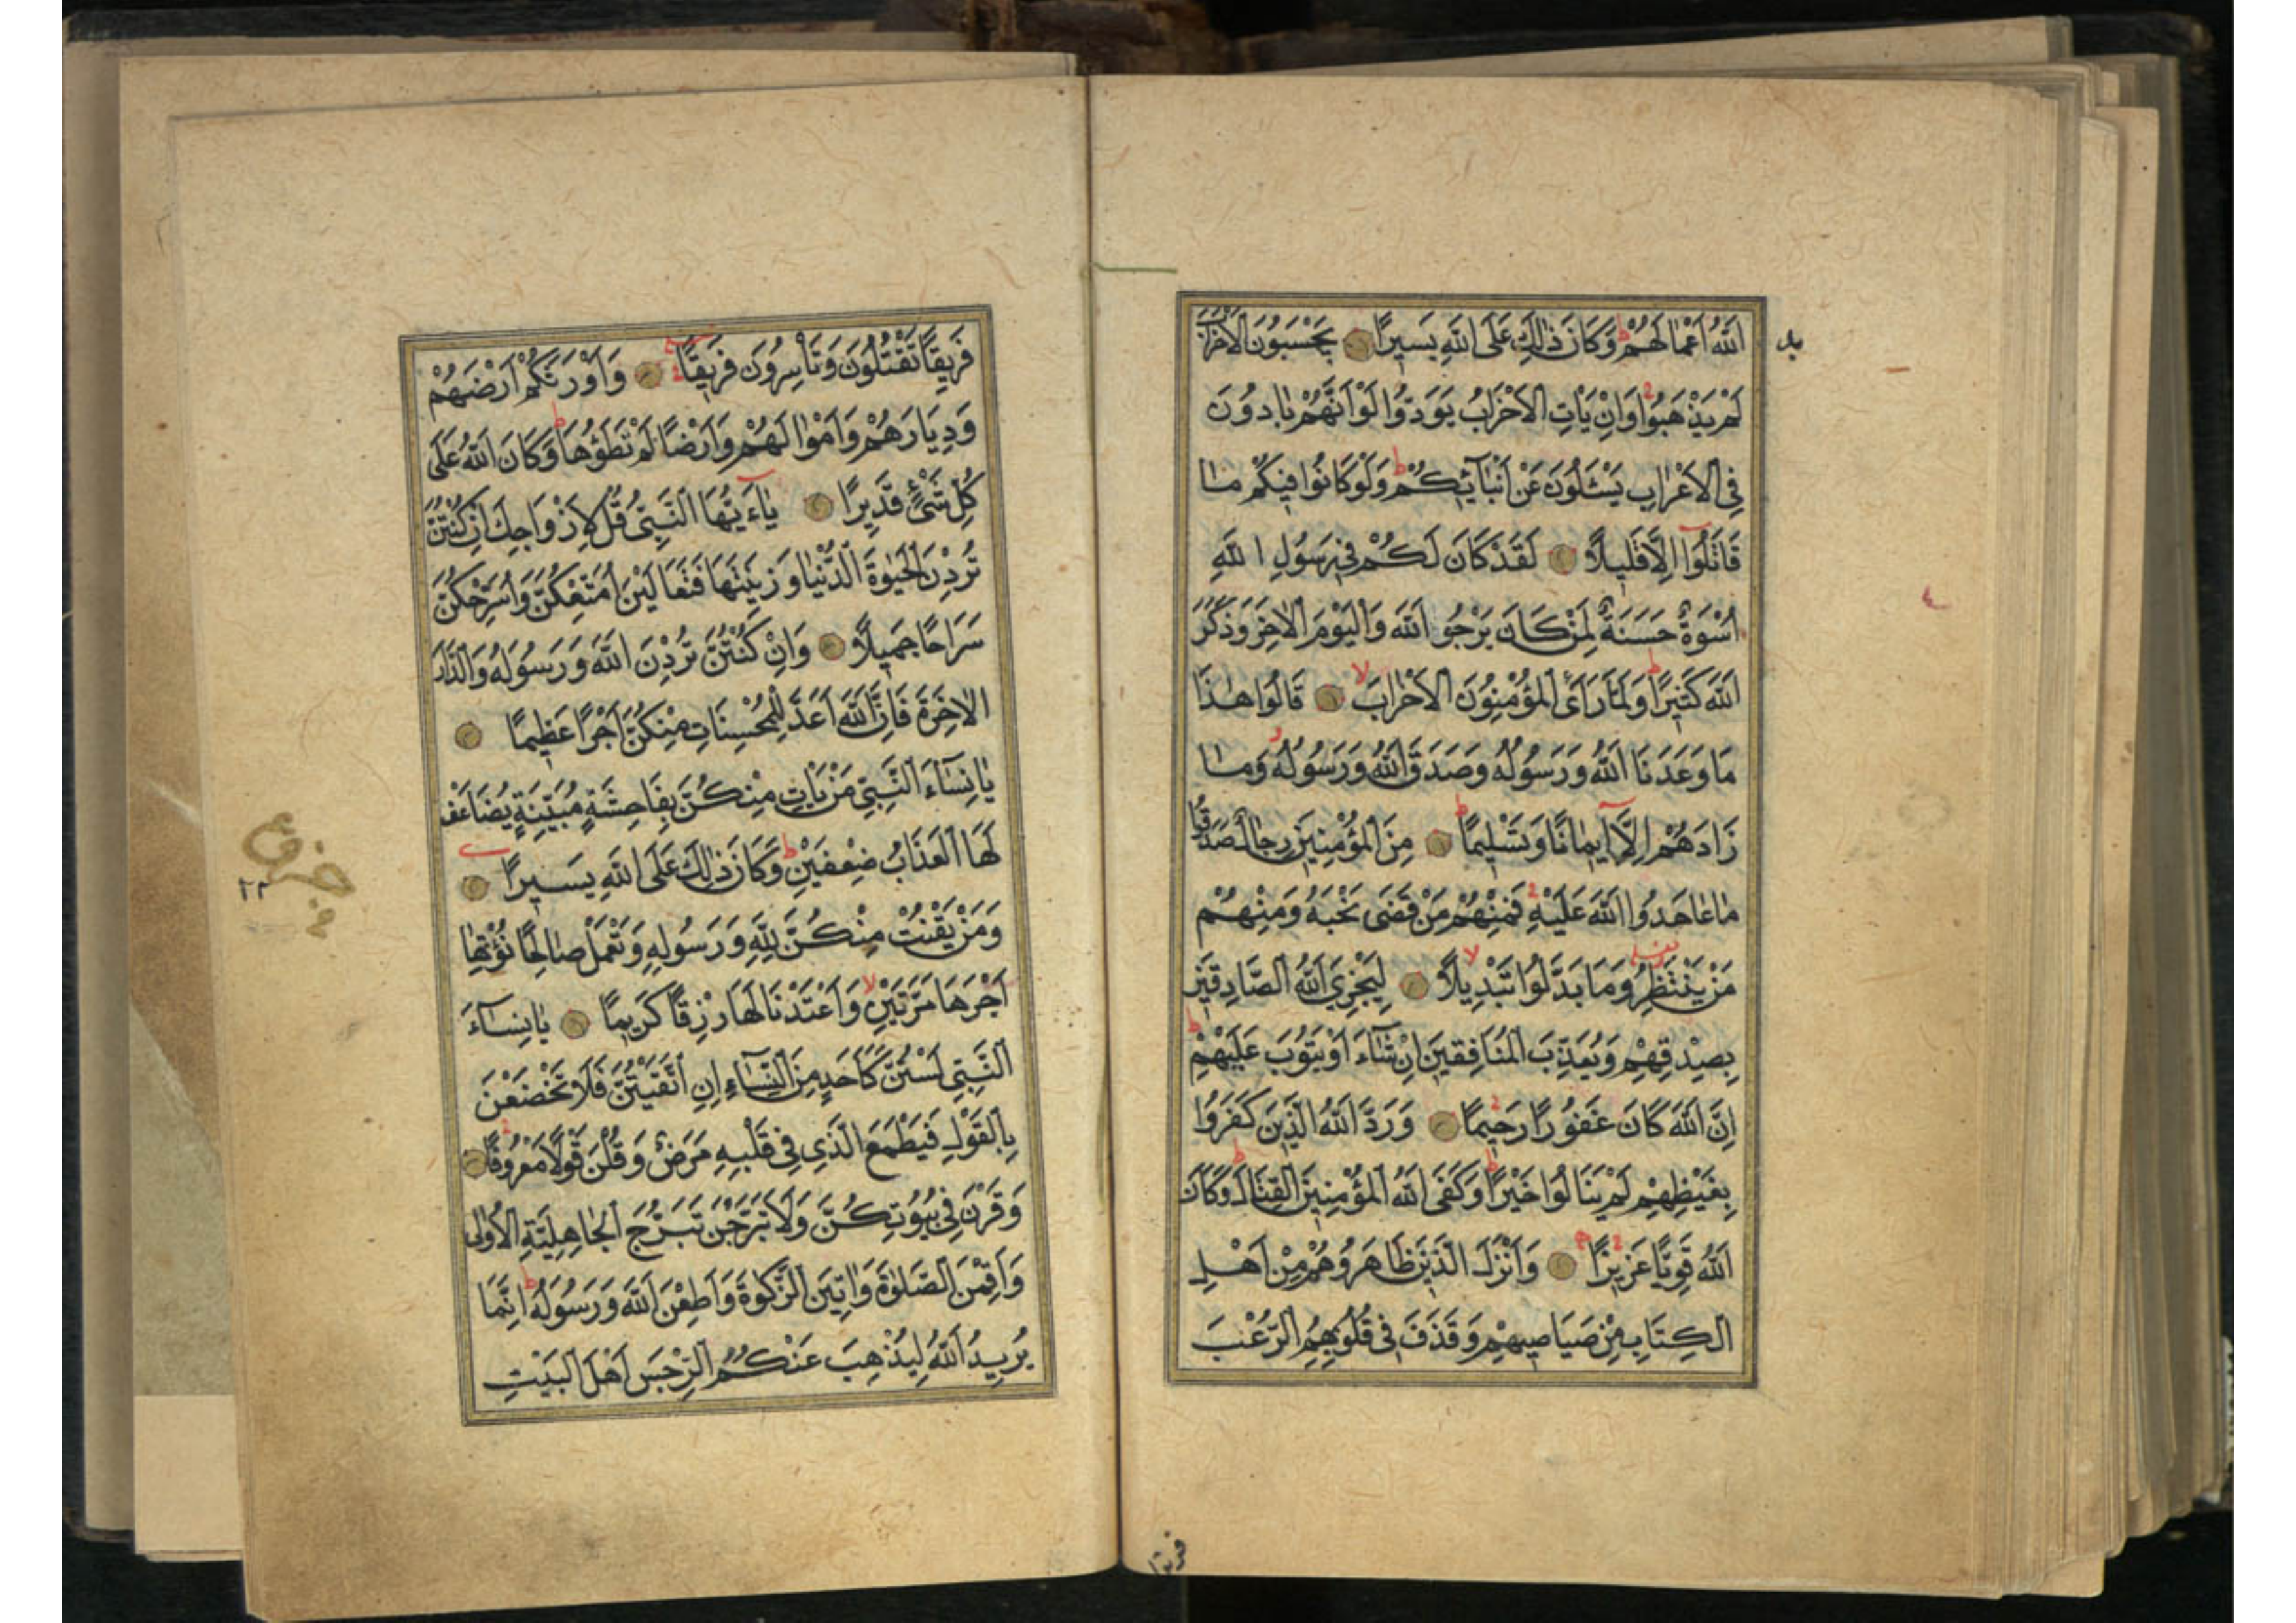 اَللّٰهُ اَعْمَالَهُمْ وَكَانَ ذٰلِكَ عَلَى اللّٰهِ يَسِيرًا يَحْسَبُونَ الْاَحْزَابَ
لَمْ يَذْهَبُوا وَاِنْ يَاْتِ الْاَحْزَابُ يَوَدُّوا لَوْ اَنَّهُمْ بَادُونَ
فِى الْاَعْرَابِ يَسْئَلُونَ عَنْ اَنْبَآئِكُمْ وَلَوْ كَانُوا فِيكُمْ مَا
قَاتَلُٓوا اِلَّا قَلِيلًا لَقَدْ كَانَ لَكُمْ فِى رَسُولِ اللّٰهِ
اُسْوَةٌ حَسَنَةٌ لِمَنْ كَانَ يَرْجُو اللّٰهَ وَالْيَوْمَ الْاٰخِرَ وَذَكَرَ
اللّٰهَ كَثِيرًا وَلَمَّا رَاَى الْمُؤْمِنُونَ الْاَحْزَابَ قَالُوا هٰذَا
مَا وَعَدَنَا اللّٰهُ وَرَسُولُهُ وَصَدَقَ اللّٰهُ وَرَسُولُهُ وَمَا
زَادَهُمْ اِلَّٓا اِيمَانًا وَتَسْلِيمًا مِنَ الْمُؤْمِنِينَ رِجَالٌ صَدَقُوا
مَا عَاهَدُوا اللّٰهَ عَلَيْهِ فَمِنْهُمْ مَنْ قَضٰى نَحْبَهُ وَمِنْهُمْ
مَنْ يَنْتَظِرُ وَمَا بَدَّلُوا تَبْدِيلًا لِيَجْزِيَ اللّٰهُ الصَّادِقِينَ
بِصِدْقِهِمْ وَيُعَذِّبَ الْمُنَافِقِينَ اِنْ شَآءَ اَوْ يَتُوبَ عَلَيْهِمْ
اِنَّ اللّٰهَ كَانَ غَفُورًا رَحِيمًا وَرَدَّ اللّٰهُ الَّذِينَ كَفَرُوا
بِغَيْظِهِمْ لَمْ يَنَالُوا خَيْرًا وَكَفَى اللّٰهُ الْمُؤْمِنِينَ الْقِتَالَ وَكَانَ
اللّٰهُ قَوِيًّا عَزِيزًا وَاَنْزَلَ الَّذِينَ ظَاهَرُوهُمْ مِنْ اَهْلِ
الْكِتَابِ مِنْ صَيَاصِيهِمْ وَقَذَفَ فِى قُلُوبِهِمُ الرُّعْبَ
فريقا
فَرِيقًا تَقْتُلُونَ وَتَاْسِرُونَ فَرِيقًا وَاَوْرَثَكُمْ اَرْضَهُمْ
وَدِيَارَهُمْ وَاَمْوَالَهُمْ وَاَرْضًا لَمْ تَطَؤُهَا وَكَانَ اللّٰهُ عَلٰى
كُلِّ شَيْءٍ قَدِيرًا يَآ اَيُّهَا النَّبِيُّ قُلْ لِاَزْوَاجِكَ اِنْ كُنْتُنَّ
تُرِدْنَ الْحَيٰوةَ الدُّنْيَا وَزِينَتَهَا فَتَعَالَيْنَ اُمَتِّعْكُنَّ وَاُسَرِّحْكُنَّ
سَرَاحًا جَمِيلًا وَاِنْ كُنْتُنَّ تُرِدْنَ اللّٰهَ وَرَسُولَهُ وَالدَّارَ
الْاٰخِرَةَ فَاِنَّ اللّٰهَ اَعَدَّ لِلْمُحْسِنَاتِ مِنْكُنَّ اَجْرًا عَظِيمًا
يَا نِسَآءَ النَّبِيِّ مَنْ يَاْتِ مِنْكُنَّ بِفَاحِشَةٍ مُبَيِّنَةٍ يُضَاعَفْ
لَهَا الْعَذَابُ ضِعْفَيْنِ وَكَانَ ذٰلِكَ عَلَى اللّٰهِ يَسِيرًا
وَمَنْ يَقْنُتْ مِنْكُنَّ لِلّٰهِ وَرَسُولِهِ وَتَعْمَلْ صَالِحًا نُؤْتِهَا
اَجْرَهَا مَرَّتَيْنِ وَاَعْتَدْنَا لَهَا رِزْقًا كَرِيمًا يَا نِسَآءَ
النَّبِيِّ لَسْتُنَّ كَاَحَدٍ مِنَ النِّسَآءِ اِنِ اتَّقَيْتُنَّ فَلَا تَخْضَعْنَ
بِالْقَوْلِ فَيَطْمَعَ الَّذِي فِي قَلْبِهِ مَرَضٌ وَقُلْنَ قَوْلًا مَعْرُوفًا
وَقَرْنَ فِي بُيُوتِكُنَّ وَلَا تَبَرَّجْنَ تَبَرُّجَ الْجَاهِلِيَّةِ الْاُولٰى
وَاَقِمْنَ الصَّلٰوةَ وَاٰتِينَ الزَّكٰوةَ وَاَطِعْنَ اللّٰهَ وَرَسُولَهُ اِنَّمَا
يُرِيدُ اللّٰهُ لِيُذْهِبَ عَنْكُمُ الرِّجْسَ اَهْلَ الْبَيْتِ